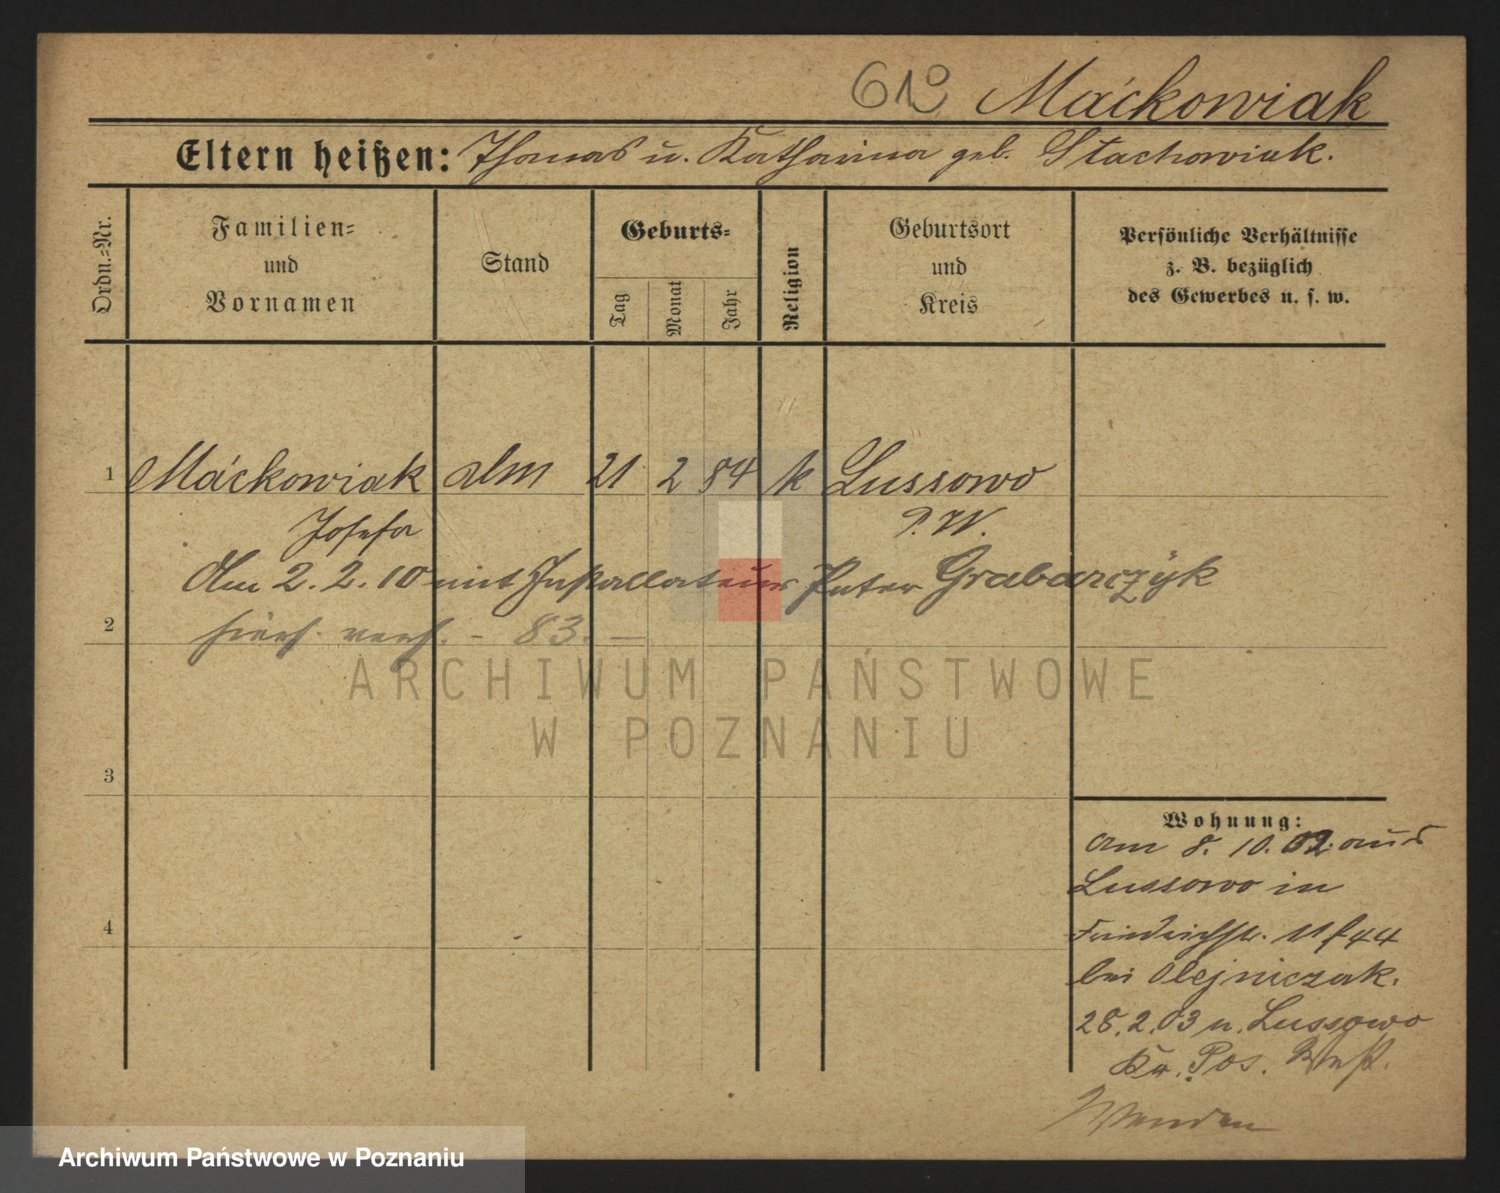 619 Maćkowiak
Eltern heißen: Thomas u. Katharina geb. Stachowiak.
Ordn.-Nr.
Familien-
und
Vornamen
Stand
Geburts-
Tag
Monat
Jahr
Religion
Geburtsort
und
Kreis
Persönliche Verhältnisse
z. B. bezüglich
des Gewerbes u. s. w.
1 Maćkowiak 21 2 84 k Lussowo
Josefa P. W.
Am 2. 2. 10 mit Installateur Peter Grabarczyk
2 hiers. verh. - 83. -
ARCHIWUM PAŃSTWOWE
W POZNANIU
3
4
Wohnung:
am 8. 10. 02. aus
Lussowo in
Friedrichstr. 11
bei Olejniczak.
28. 2. 03 n. Lussowo
Kr. Pos. West.
Wenden
Archiwum Państwowe w Poznaniu